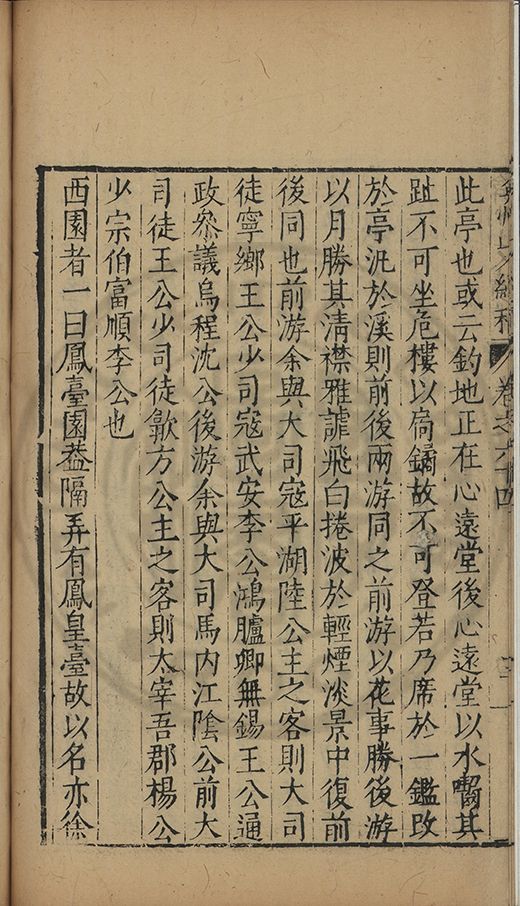 弇州山人續稿 卷之六十四
此亭也或云釣地正在心遠堂後心遠堂以水嚙其
趾不可坐危樓以扃鐍故不可登若乃席於一鑑改
於亭汎於溪則前後兩游同之前游以花事勝後游
以月勝其清襟雅謔飛白捲波於輕煙淡景中復前
後同也前游余與大司寇平湖陸公主之客則大司
徒寧鄉王公少司寇武安李公鴻臚卿無錫王公通
政叅議烏程沈公後游余與大司馬内江陰公前大
司徒王公少司徒歙方公主之客則太宰吾郡楊公
少宗伯富順李公也
西園者一曰鳳臺園葢隔弄有鳳皇臺故以名亦徐